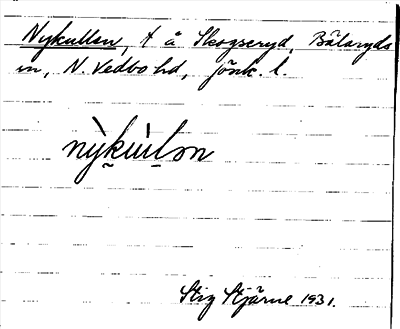 Nykullen, t å Skogseryd, Bälaryds
sn, N. Vedbo hd, Jönk. l.
Stig Stjärne 1931.